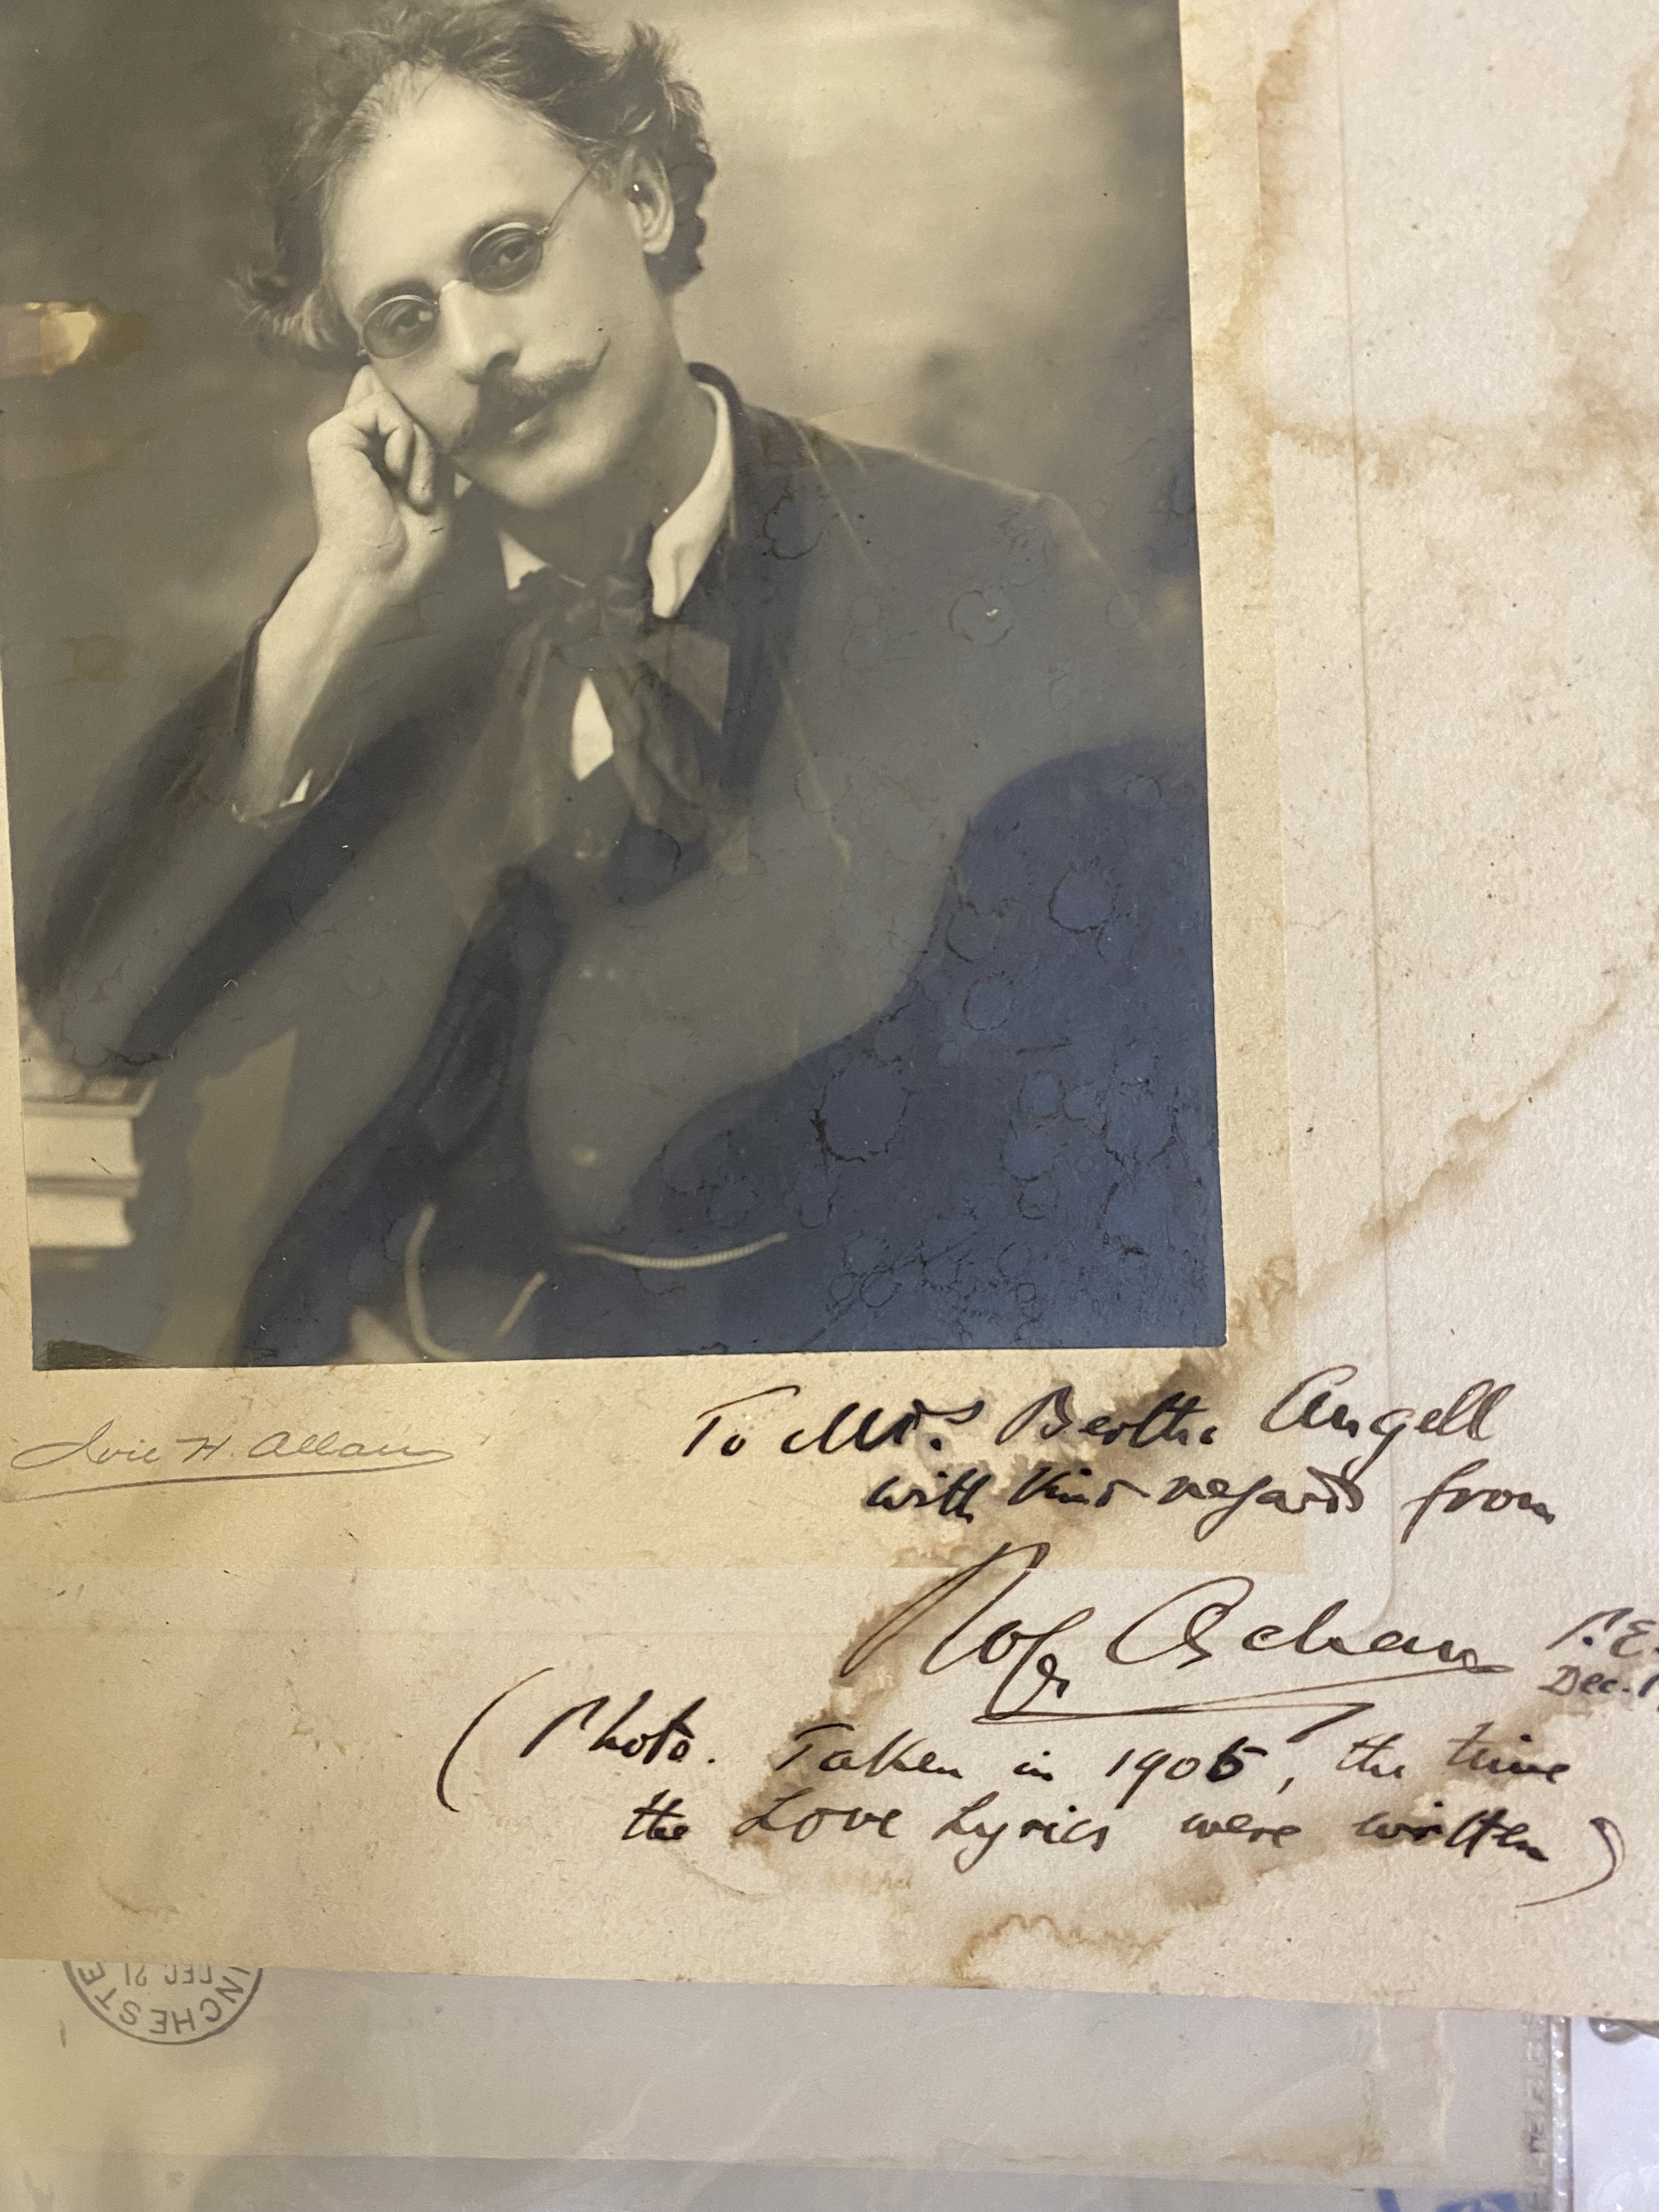 H. Allan
To Mrs. Bertha Angell
with kind regards from
P.E.
Dec.
(Photo. Taken in 1905, the time
the Love Lyrics were written)
DEC 21
NCHESTE